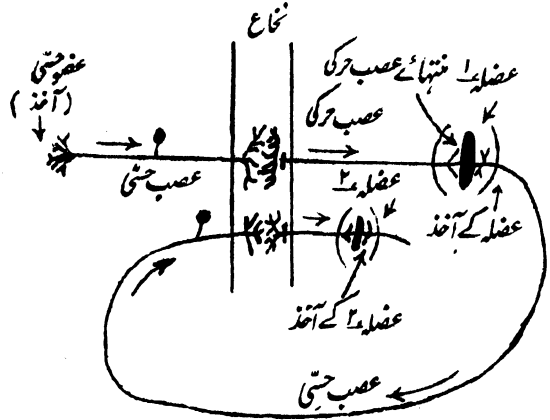 نخاع
عضو حسّی
(آخذ)
عضلہ ۱
منتہائے عصب حرکی
عصب حرکی
عصب حسّی
عضلہ ۲
عضلہ کے آخذ
عضلہ ۲ کے آخذ
عصب حسّی